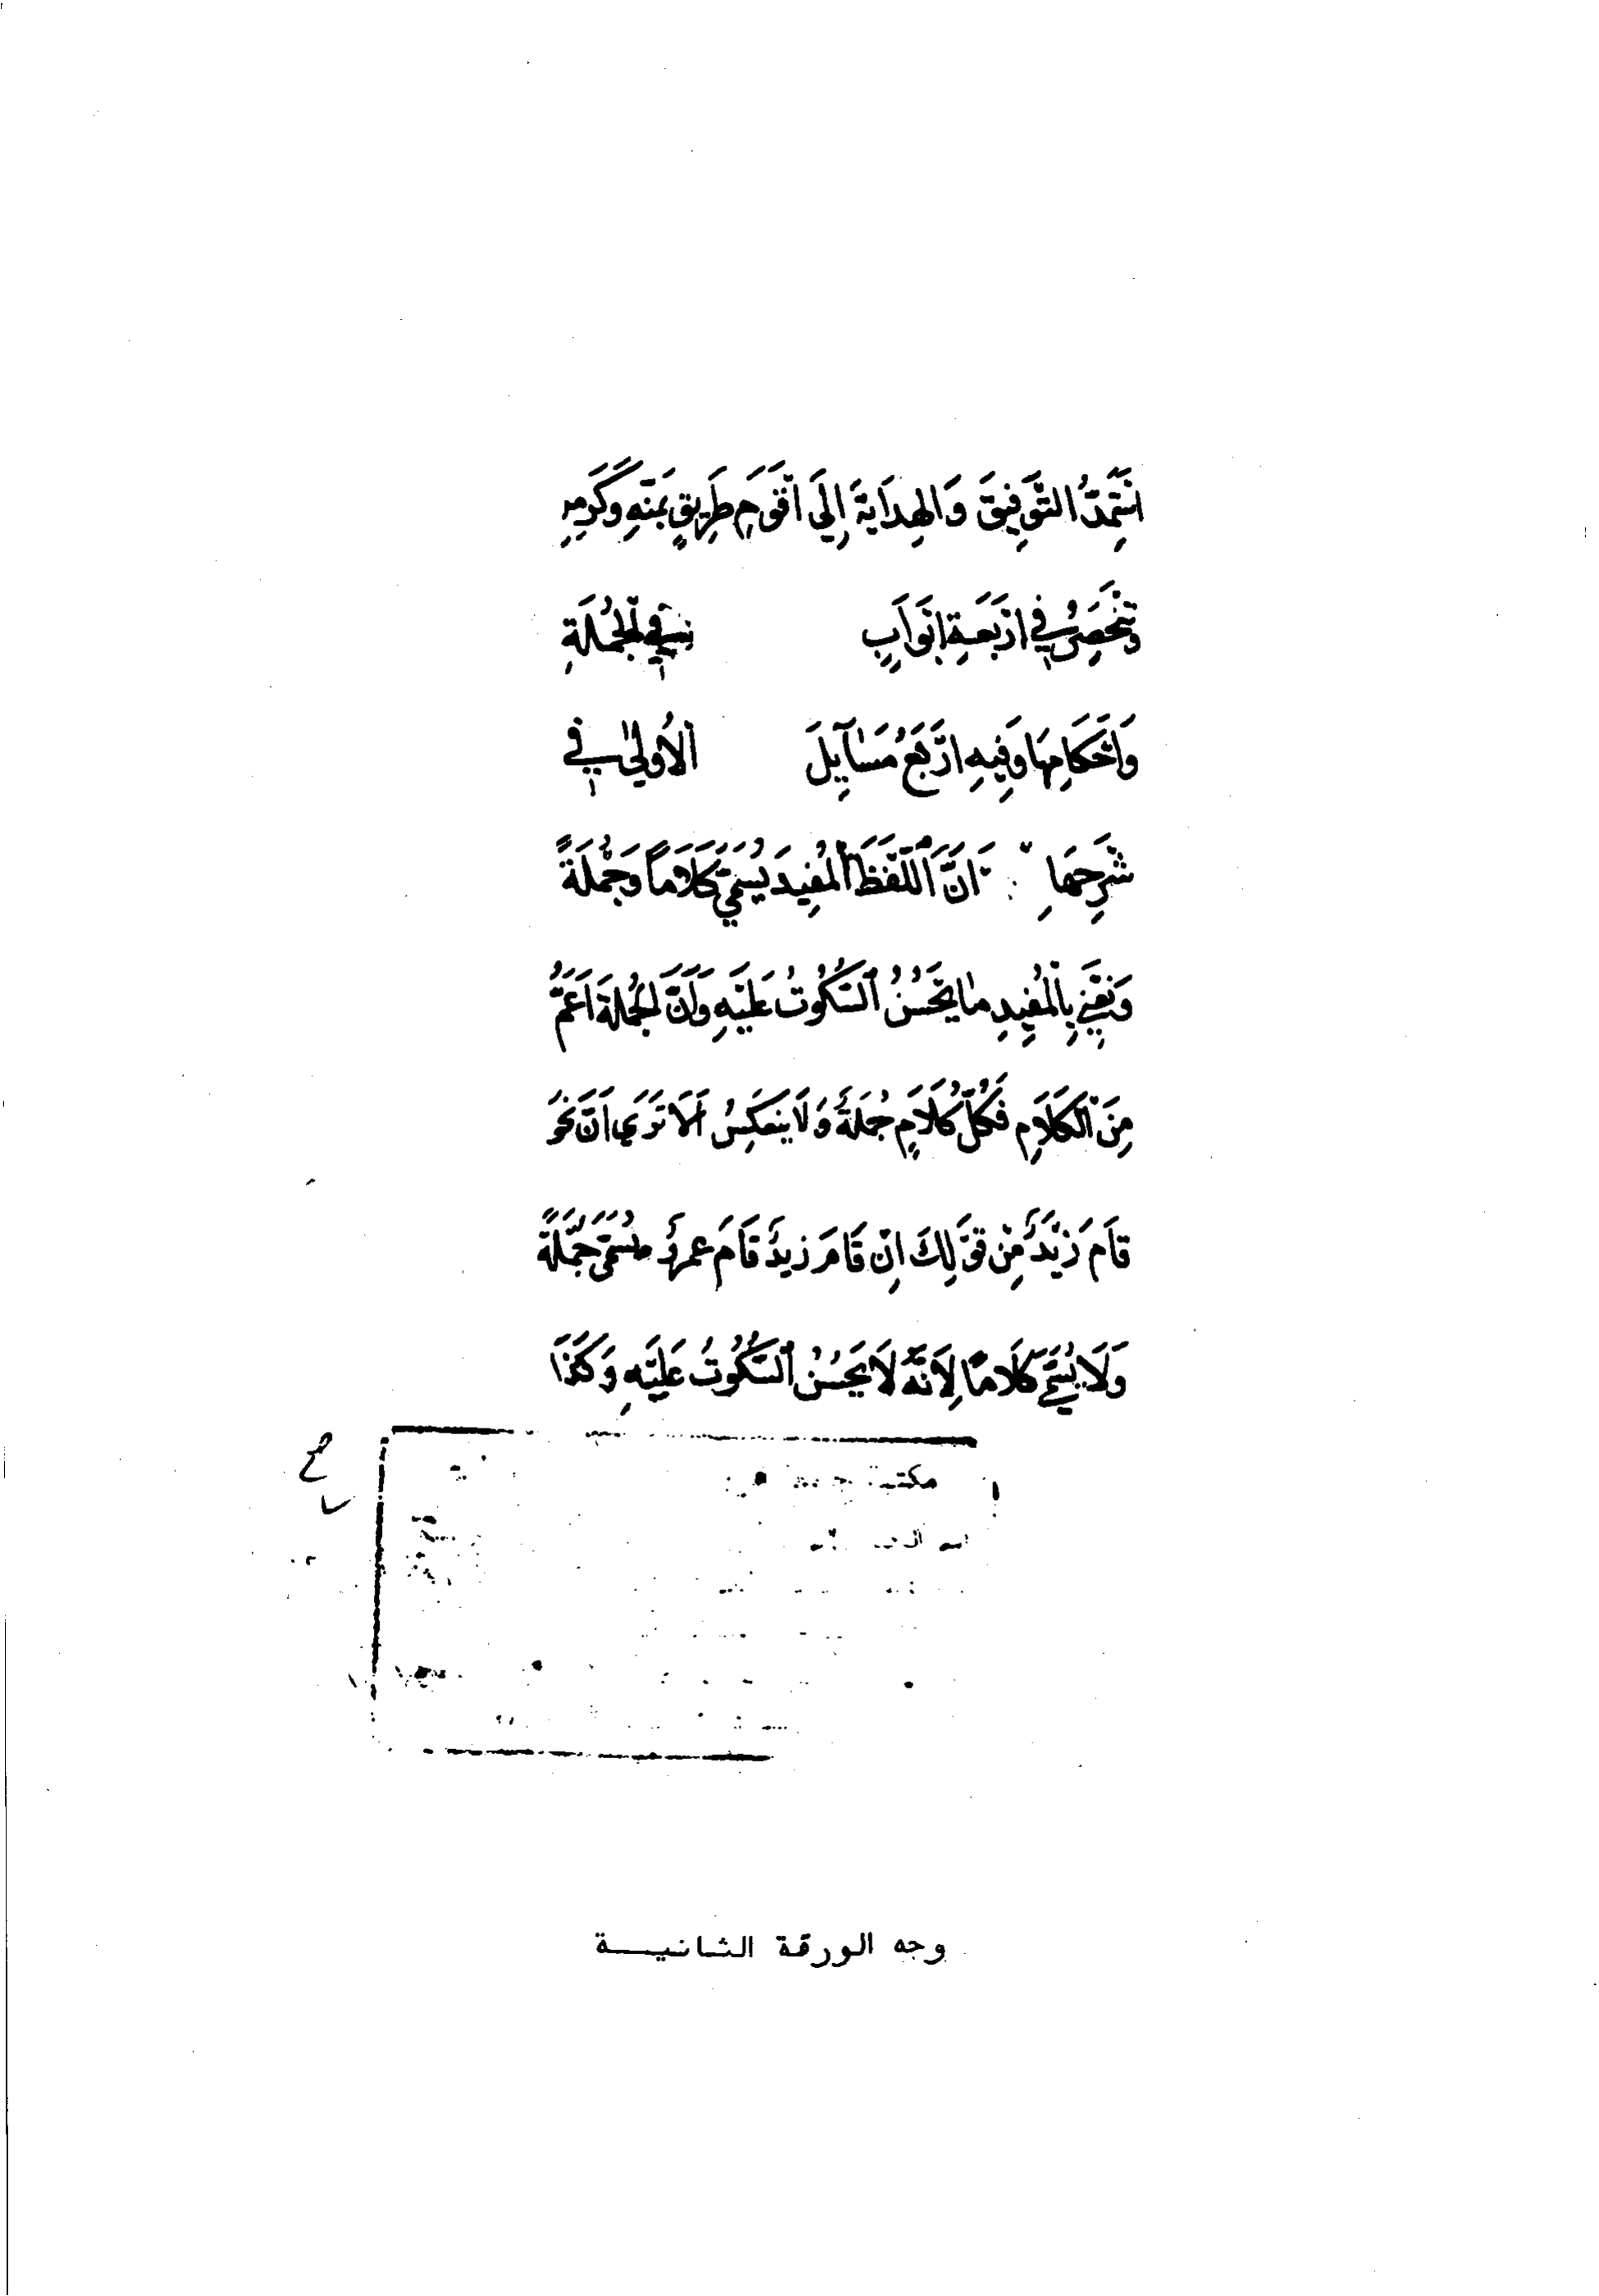 اَسْتَمِدُّ التَّوْفِيقَ وَالهِدَايَةَ إِلَى أَقْوَمِ طَرِيقٍ بِمَنِّهِ وَكَرَمِهِ
وَتَنْحَصِرُ فِي أَرْبَعَةِ أَبْوَابٍ فِي الْجُمْلَةِ
وَأَحْكَامِهَا وَفِيهِ أَرْبَعُ مَسَآيِلَ الأُولَى فِي
شَرْحِهَا أَنَّ اللَّفْظَ الْمُفِيدَ يُسَمَّى كَلَامًا وَجُمْلَةً
وَنَعْنِي بِالْمُفِيدِ مَا يَحْسُنُ السُّكُوتُ عَلَيْهِ وَأَنَّ الْجُمْلَةَ أَعَمُّ
مِنَ الْكَلَامِ فَكُلُّ كَلَامٍ جُمْلَةٌ وَلَا يَنْعَكِسُ أَلَا تَرَى أَنَّ نَحْوَ
قَامَ زَيْدٌ مِنْ قَوْلِكَ إِنْ قَامَ زَيْدٌ قَامَ عَمْرٌو يُسَمَّى جُمْلَةً
وَلَا يُسَمَّى كَلَامًا لِأَنَّهُ لَا يَحْسُنُ السُّكُوتُ عَلَيْهِ وَكَذَا
مكتبة
وجه الورقة الثانيـــة